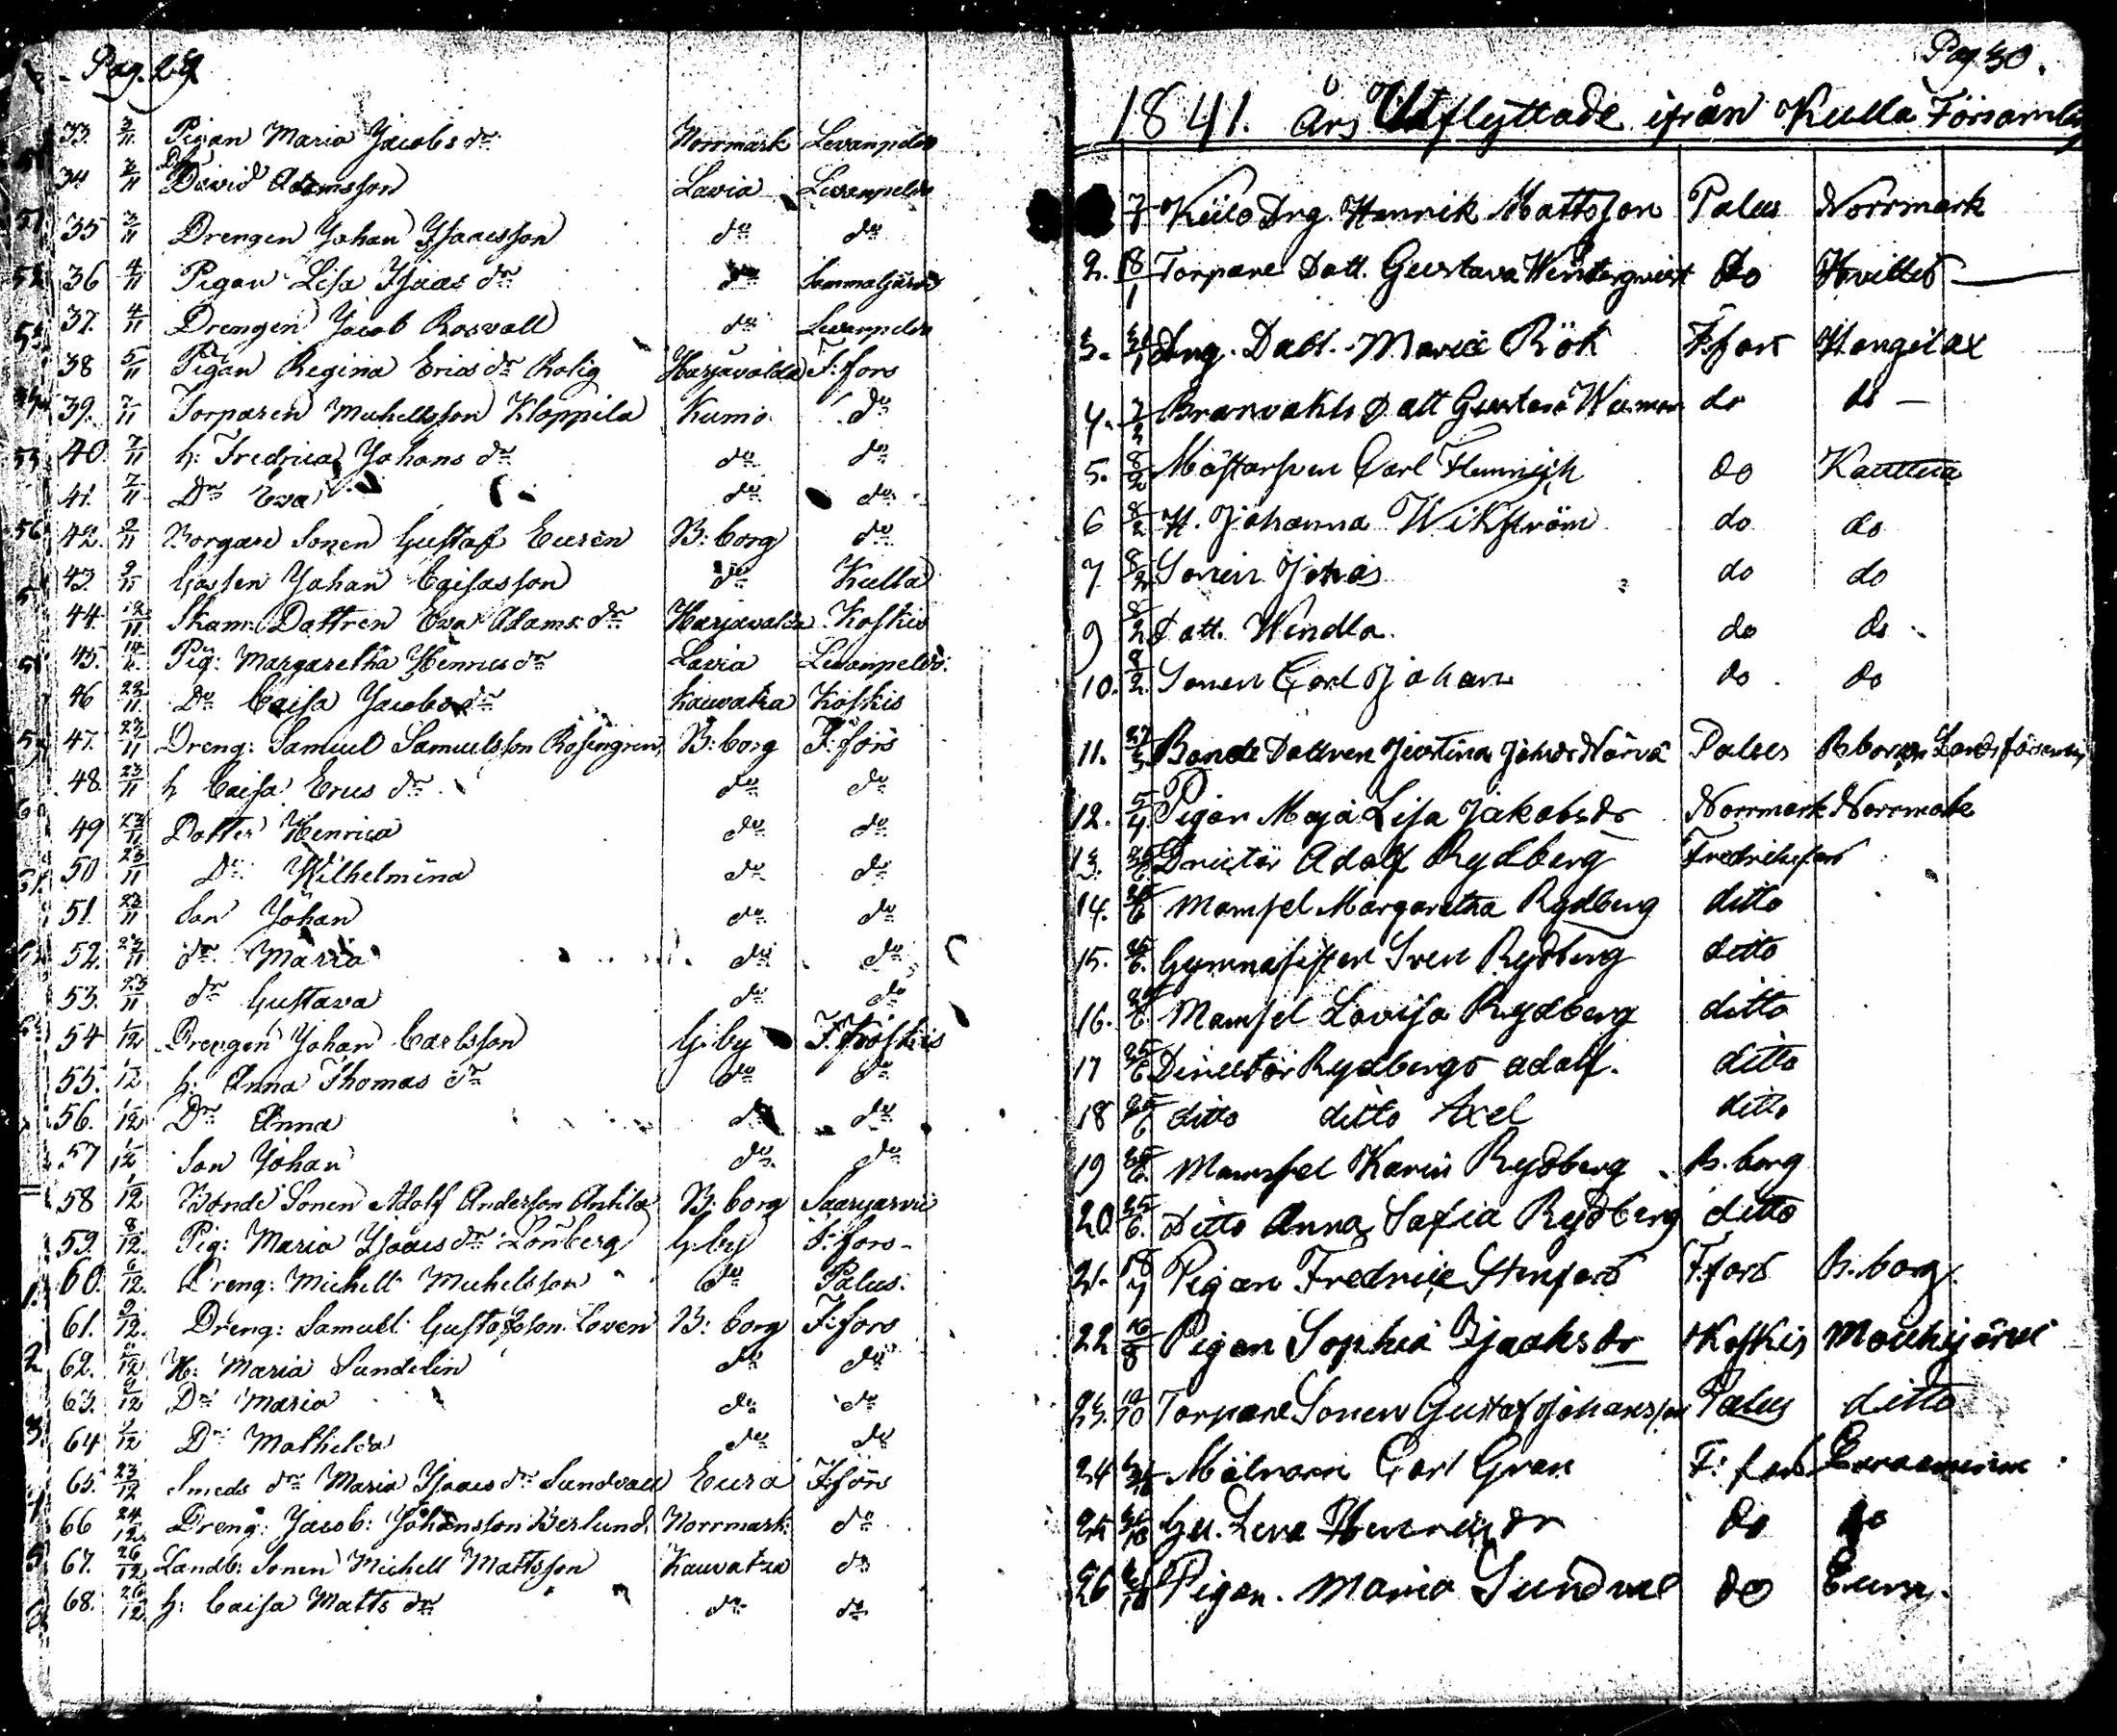 Pag. 29
33. 3/11 Pigan Maria Jacobs dr Norrmark Levanpelda
34 3/11 Drg David Adamsson Lavia Levanpelda
35 3/11 Drengen Johan Isaacsson do do
36 4/11 Pigan Lisa Isaacs dr do Sammaljärvi
37. 4/11 Drengen Jacob Rosvall do Levanpelda
38 5/11 Pigan Regina Erics dr Rolig Harjavalda F:fors
39. 7/11 Torparen Michellsson Kloppila Kumo do
40. 7/11 h: Fredrica Johans dr do do
41. 7/11 Dr Eva do do
42. 9/11 Borgare Sonen Gustaf Eurén B:borg do
43. 9/11 Gossen Johan Caisasson do Kulla
44. 12/11 Dottren Eva Adams dr Harjavalda Koskis
45. 14/11 Pig: Margaretha Henrics dr Lavia Levanpelda
46 23/11 Do Caisa Jacobs dr Kauvatsa Koskis
47. 23/11 Dreng: Samuel Samuelsson Rosengren B:borg F:fors
48. 23/11 h Caisa Erics dr do do
49 23/11 Dotter Henrica do do
50 23/11 Do Wilhelmina do do
51. 23/11 Son Johan do do
52. 23/11 dr Maria do do
53. 23/11 dr Gustava do do
54 1/12 Drengen Johan Carlsson G:by Koskis
55. 1/12 h: Anna Thomas dr do do
56. 1/12 Dr Anna do do
57 1/12 Son Johan do do
58 1/12 Bonde Sonen Adolf Andersson Anttila B:borg Saarijarvi
59. 8/12 Pig: Maria Isaacs dr Lönberg G:by F:fors
60. 6/12 Dreng: Michell Michelsson do Palus.
61. 9/12 Dreng: Samuel Gustafsson Loven B:borg F:fors
62. 9/12 H: Maria Sundelin do do
63. 9/12 Dr Maria do do
64 9/12 Dr Mathilda do do
65. 23/12 Smeds dr Maria Isaacs dr Sundvall Eura F:fors
66 24/12 Dreng: Jacob: Johansson Berlund Norrmark do
67. 26/12 Landb: Sonen Michell Mattsson Kauvatsa do
68. 26/12 h: Caisa Matts dr do do
Pag 30.
1841. Års Utflyttade ifrån Kulla Församling
Drg. Henrik Mattsson Palus Norrmark
2. 18/1 Torpare Dott. Gustava Wintergvist do Hvittis
3. Drg. Dott. Maria Rök F:fors Hongilax
4. 2/2 Dott Gustava do do
5. 8/2 Mästarsven Carl Flemrich do Kauttua
6 8/2 H. Johanna Wikström do do
7 8/2 Sonen do do
9 8/2 Dott. Wendla do do
10. 8/2 Sonen Carl Johan do do
11. Bonde Dottren Palus B borgs Landsförsamling
12. 5/4 Pigan Maja Lisa Jakobsdr Norrmark Norrmark
13. Director Adolf Rydberg Fredriksfors
14. 25/6 Mamsel Margaretha Rydberg ditto
15. 25/6. Gymnasisten Sven Rydberg ditto
16. 25/6 Mamsel Lovisa Rydberg ditto
17 25/6 Director Rydbergs Adolf. ditto
18 25/6 ditto ditto Axel ditto
19 25/6. Mamsel Karin Rydberg B.borg
20. 25/6. Ditto Anna Sofia Rydberg ditto
21. Pigan Fredrica Stenfors F.fors B.borg.
22 16/8 Pigan Sophia Isaaksdr Koskis Mouhijärvi
23. 10/10 Torpare Sonen Gustaf Johansson Palus ditto
24 Målnarn Carl Gran F:fors
25 Hu. Lena Henriksdr do do
26 Pigan. Maria Sundvall do Eura.